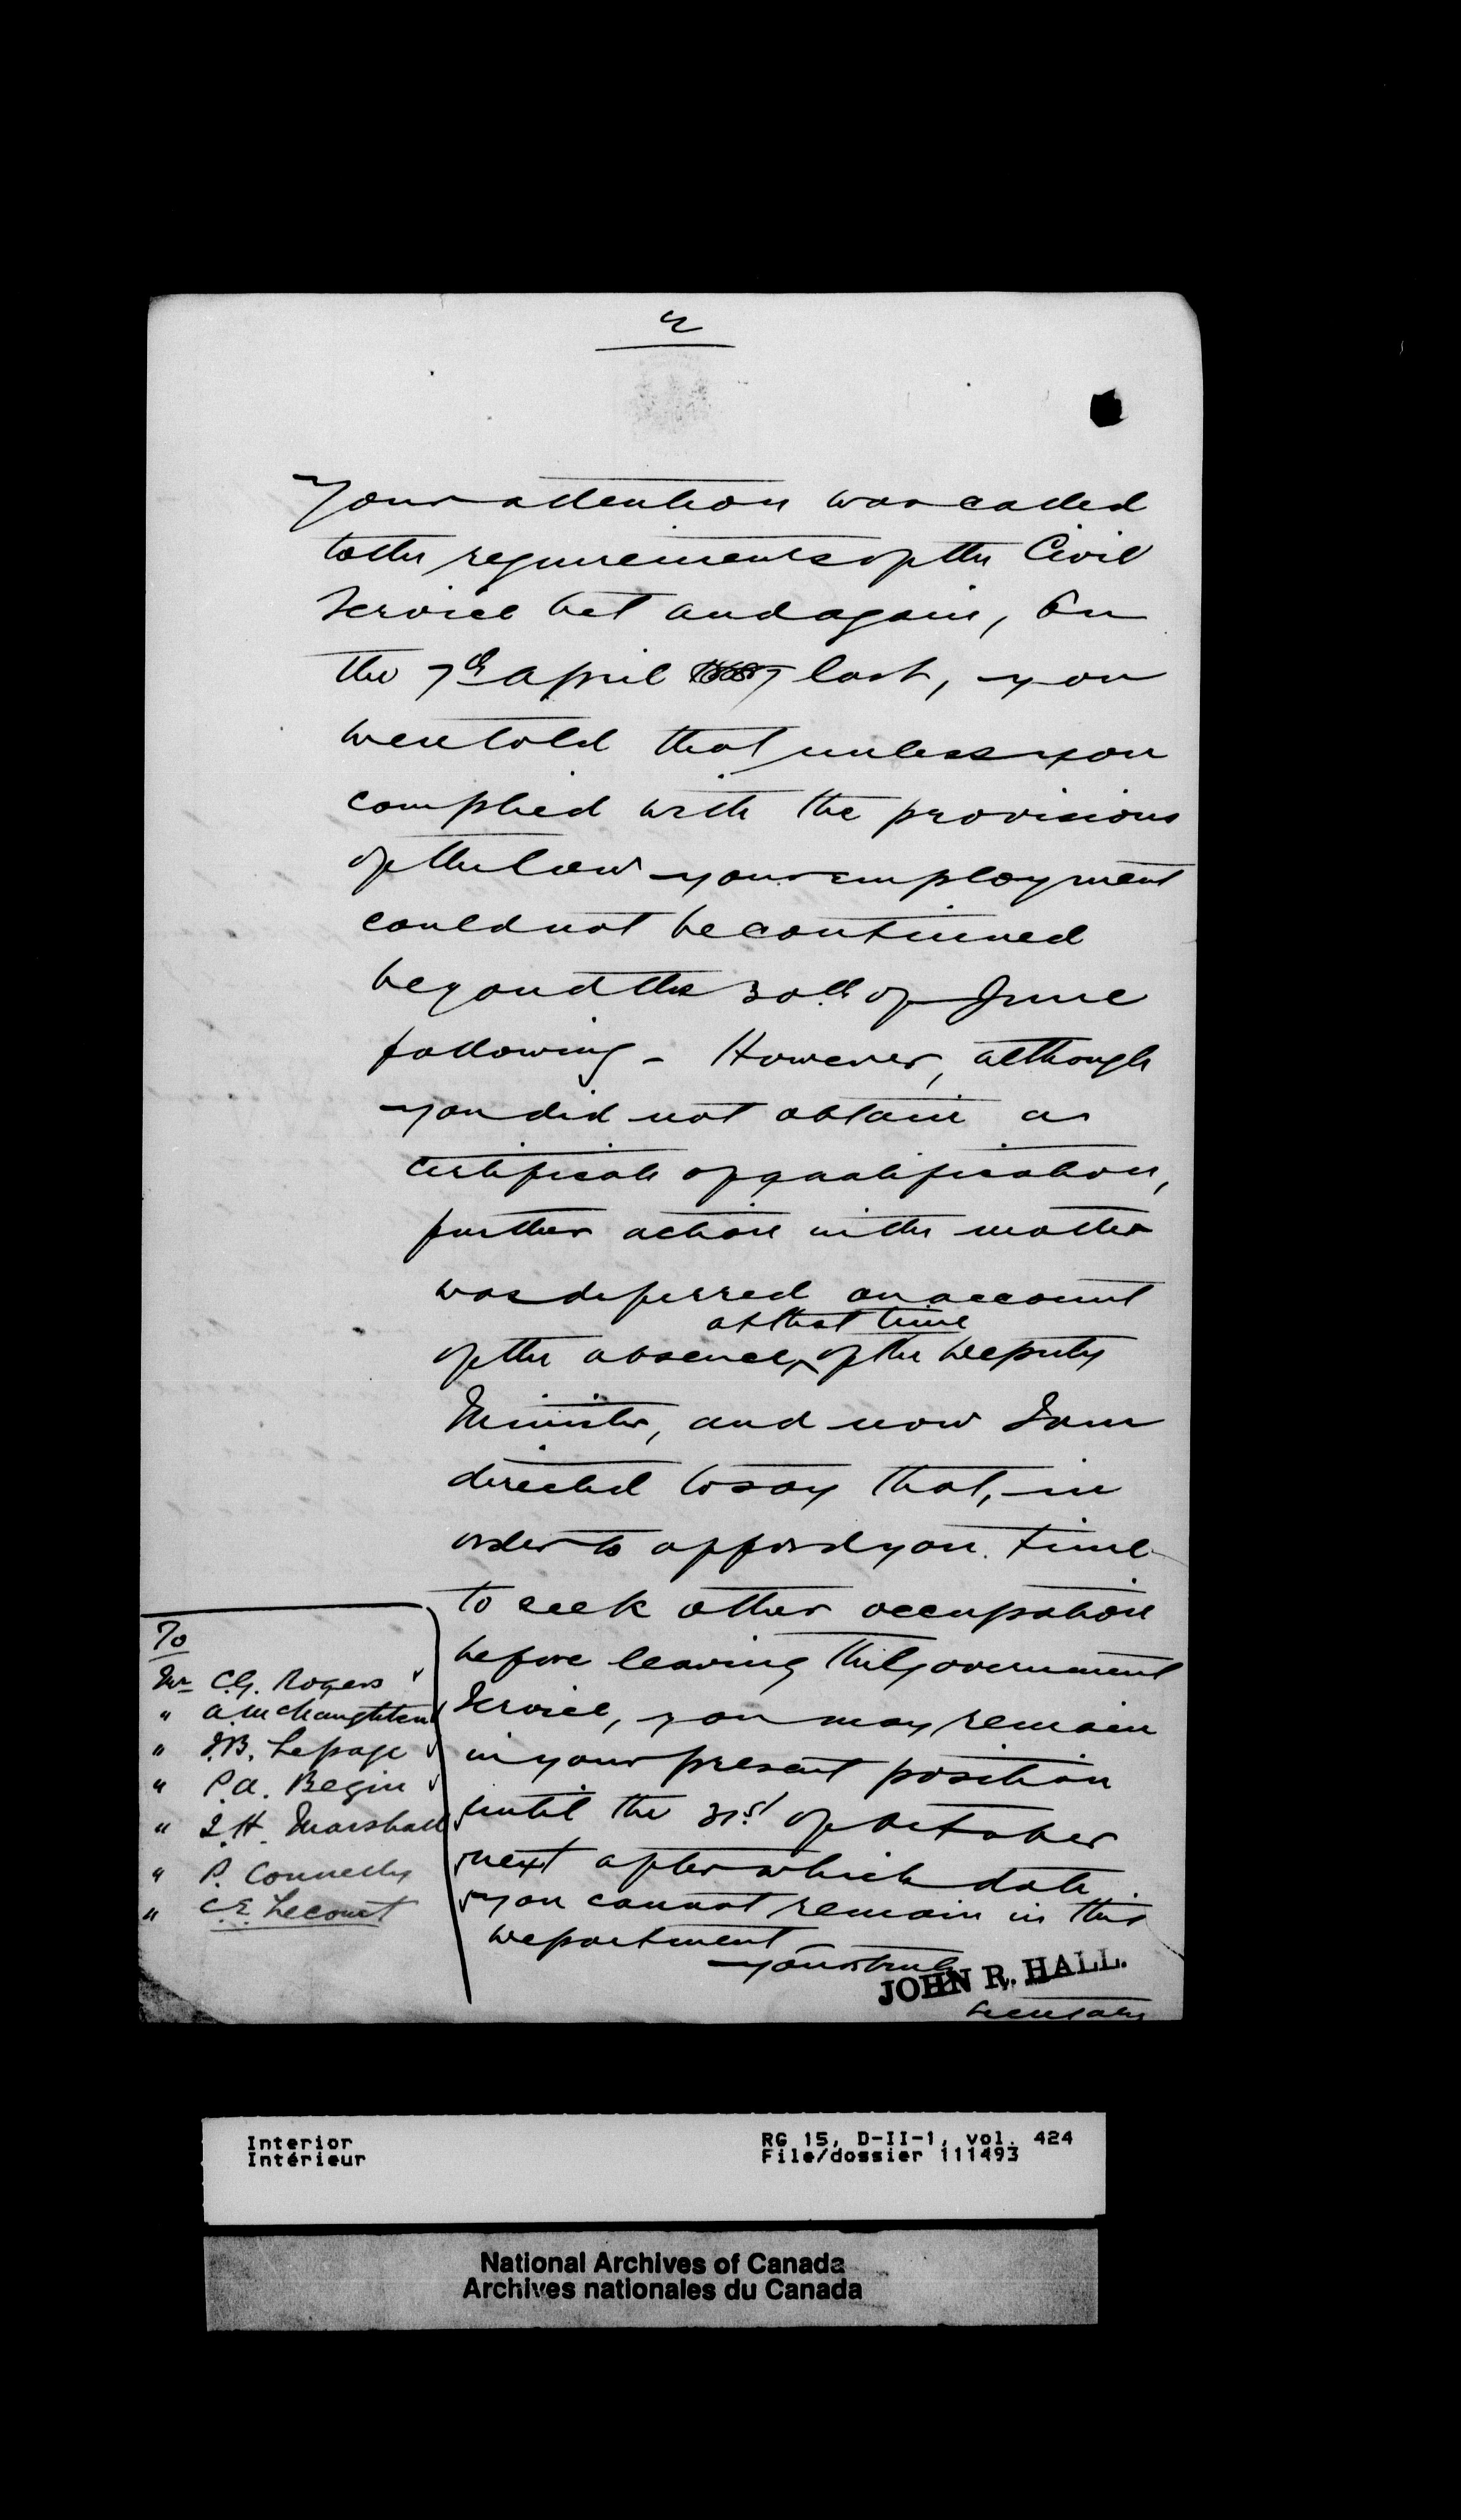 2
Your attention was called
to the requirements of the Civil
Service Act and again, on
the 7th April 1887 last, you
were told that unless you
complied with the provisions
of the law your employment
could not be continued
beyond the 30th of June
following - However, although
you did not obtain a
certificate of qualification,
further action in the matter
was deferred on account
at that time
of the absence of the Deputy
Minister, and now I am
directed to say that, in
order to afford you time
to seek other occupation
before leaving the Government
Service, you may remain
in your present position
until the 31st of October
next after which date
you cannot remain in this
Department
Yours truly
JOHN R. HALL.
Secretary
To
Mr C.G. Rogers
" A. McNaughten
" J.B. Lepage
" P.A. Begin
" J.H. Marshall
" P. Connelly
" C.E. Lecourt
Interior
Intérieur
RG 15, D-II-1, vol. 424
File/dossier 111493
National Archives of Canada
Archives nationales du Canada